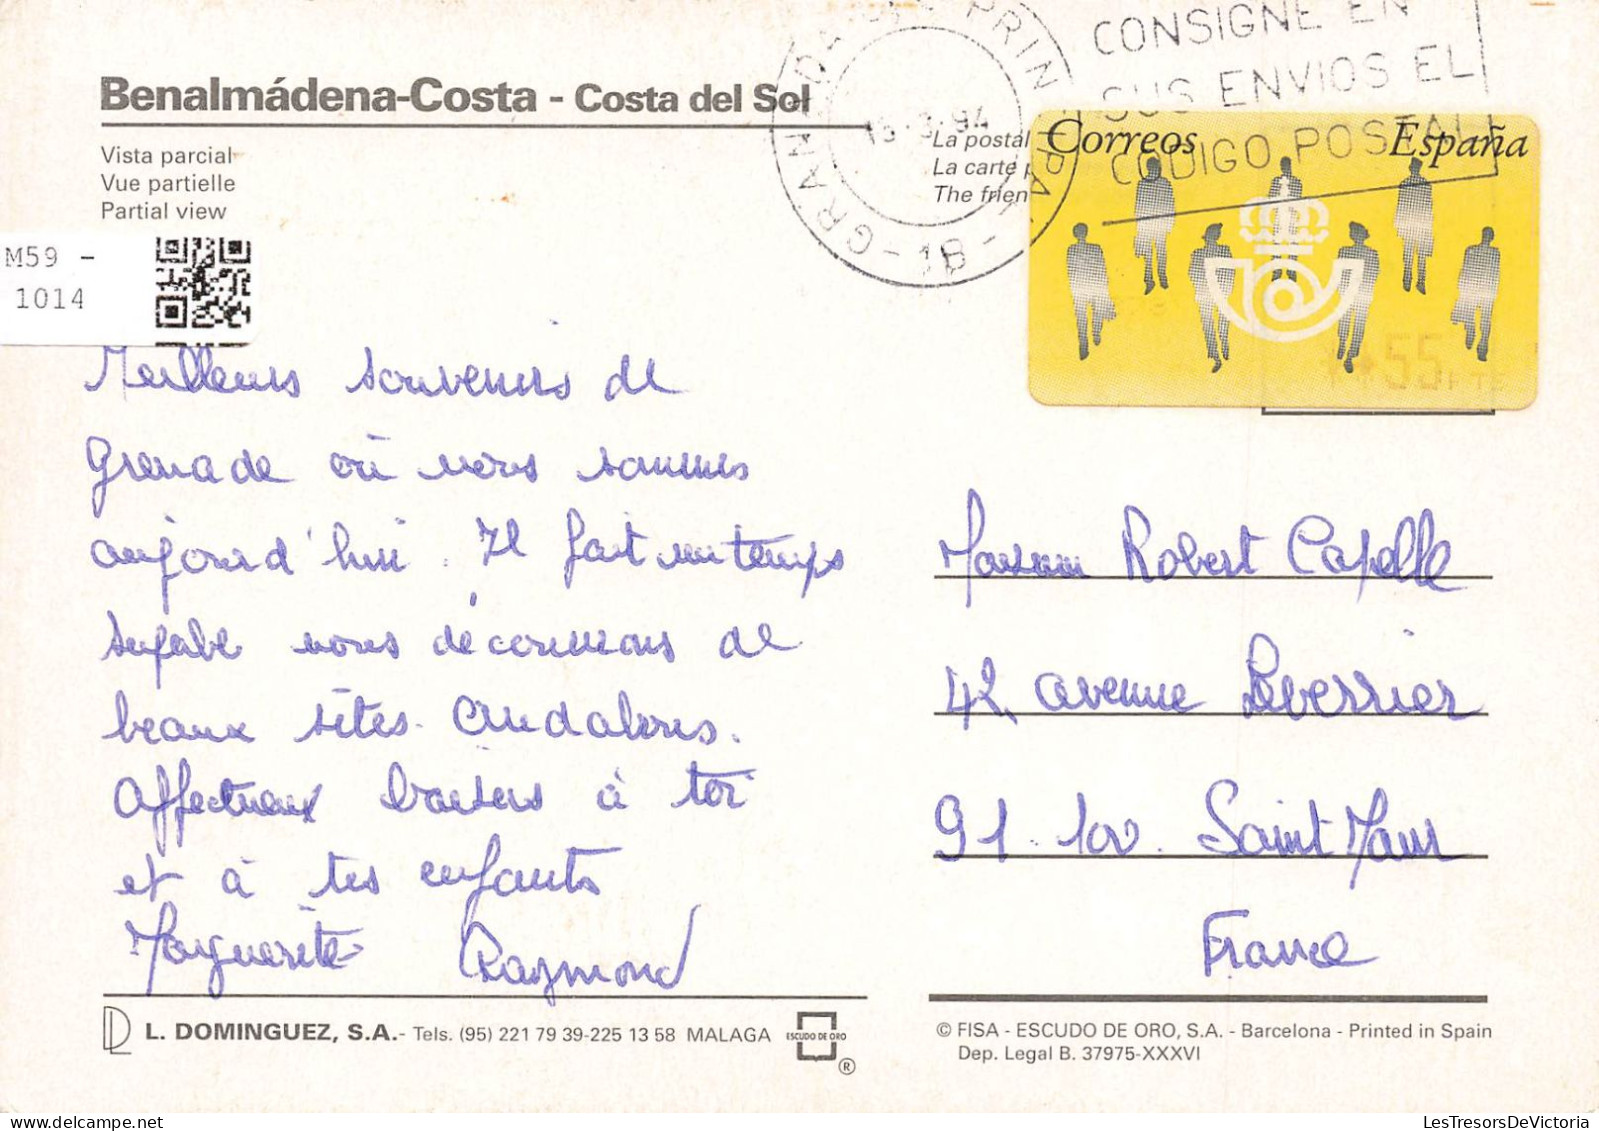 CONSIGNE EN
SUS ENVIOS EL
CODIGO POSTAL
Benalmádena-Costa - Costa del Sol
Vista parcial
Vue partielle
Partial view
M59 -
1014
94
La postal
La carte p
The frien
Correos España
**55 PTS
Meilleurs souvenirs de
Grenade où nous sommes
aujourd'hui. Il fait un temps
superbe nous découvrons de
beaux sites Andalous.
Affectueux baisers à toi
et à tes enfants
Marguerite Raymond
Robert Capelle
42 avenue Leverrier
Saint Maur
France
L. DOMINGUEZ, S.A. - Tels. (95) 221 79 39-225 13 58 MALAGA
ESCUDO DE ORO
®
© FISA - ESCUDO DE ORO, S.A. - Barcelona - Printed in Spain
Dep. Legal B. 37975-XXXVI
LesTresorsDeVictoria.com